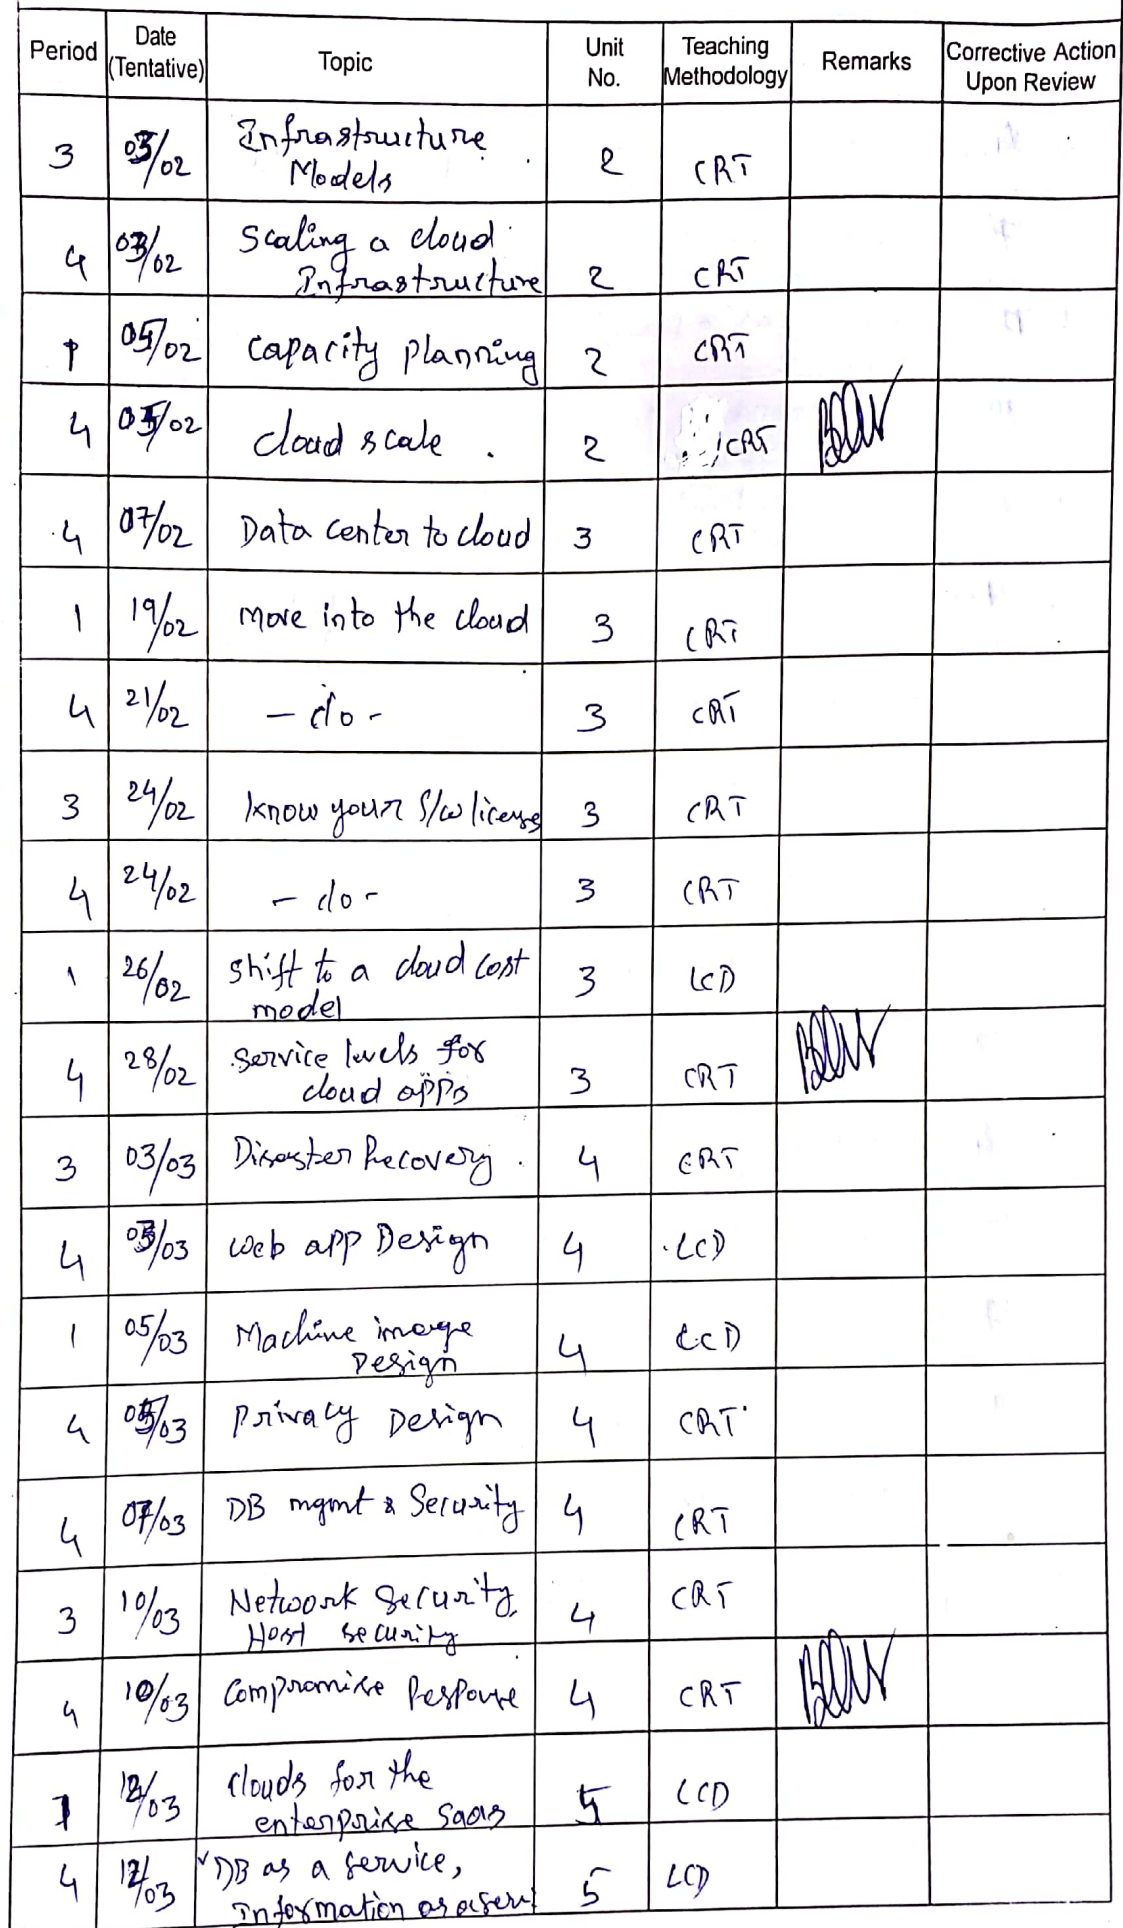 Period Date (Tentative) Topic Unit No. Teaching Methodology Remarks Corrective Action Upon Review
3 03/02 Infrastructure Models 2 CRT
4 03/02 Scaling a cloud Infrastructure 2 CRT
1 05/02 Capacity planning 2 CRT
4 05/02 cloud scale . 2 CRT
4 07/02 Data center to cloud 3 CRT
1 19/02 move into the cloud 3 CRT
4 21/02 - do - 3 CRT
3 24/02 know your S/w license 3 CRT
4 24/02 - do - 3 CRT
1 26/02 shift to a cloud cost model 3 LCD
4 28/02 service levels for cloud apps 3 CRT
3 03/03 Disaster Recovery . 4 CRT
4 03/03 web app Design 4 LCD
1 05/03 Machine image Design 4 LCD
4 05/03 Privacy Design 4 CRT
4 07/03 DB mgmt & Security 4 CRT
3 10/03 Network Security, Host security 4 CRT
4 10/03 Compromise Response 4 CRT
1 12/03 clouds for the enterprise saas 5 LCD
4 12/03 DB as a service, Information as a servi 5 LCD